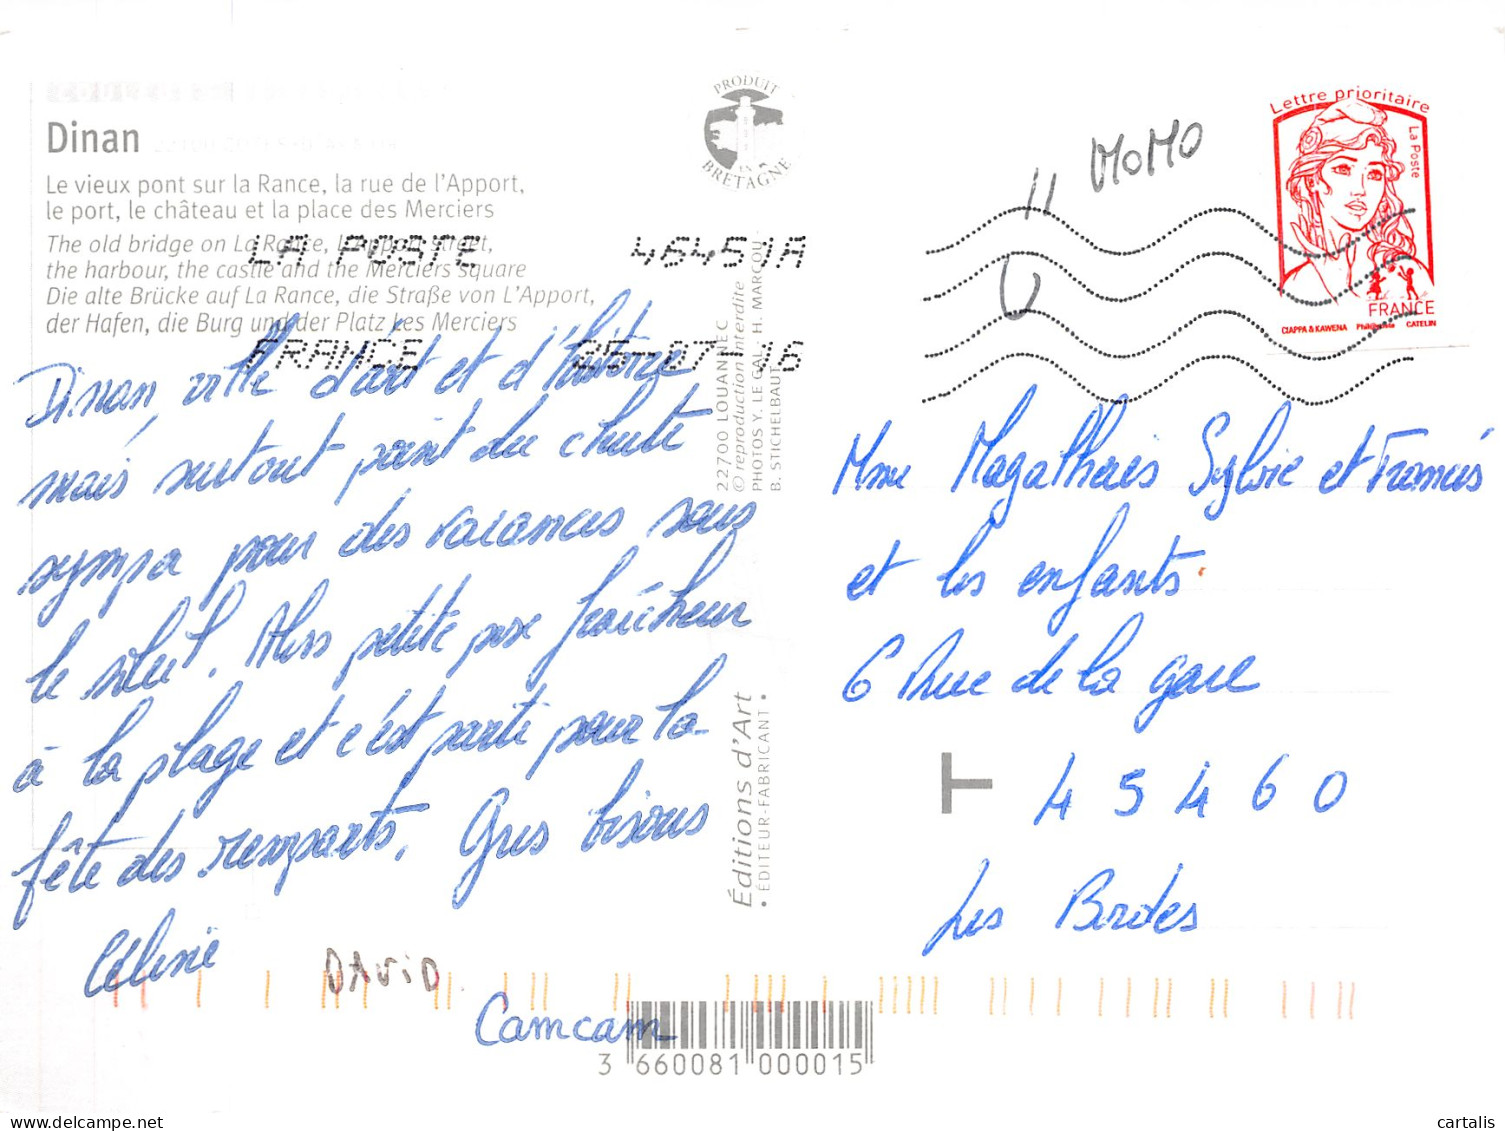 Dinan
Le vieux pont sur la Rance, la rue de l'Apport,
le port, le château et la place des Merciers
The old bridge on La Rance, L'Apport street,
the harbour, the castle and the Merciers square
Die alte Brücke auf La Rance, die Straße von L'Apport,
der Hafen, die Burg und der Platz Les Merciers
LA POSTE 46451A
FRANCE 25-07-16
Dinan, ville d'art et d'histoire,
mais surtout point de chute
sympa pour des vacances sous
le soleil. Alors petite fraîcheur
à la plage et c'est parti pour la
fête des remparts. Gros bisous
Céline
DAViD
Camcam
PRODUIT
EN
BRETAGNE
22700 LOUANNEC
© reproduction interdite
PHOTOS Y. LE GAL - H. MARCOU
B. STICHELBAUT
Éditions d'Art
• ÉDITEUR-FABRICANT •
3 660081 000015
MOMO
Lettre prioritaire
La Poste
FRANCE
CIAPPA & KAWENA Phil@poste CATELIN
Mme Magalhaes Sylvie et Francis
et les enfants.
6 Rue de la gare
T 45460
Les Bordes
cartalis
www.delcampe.net